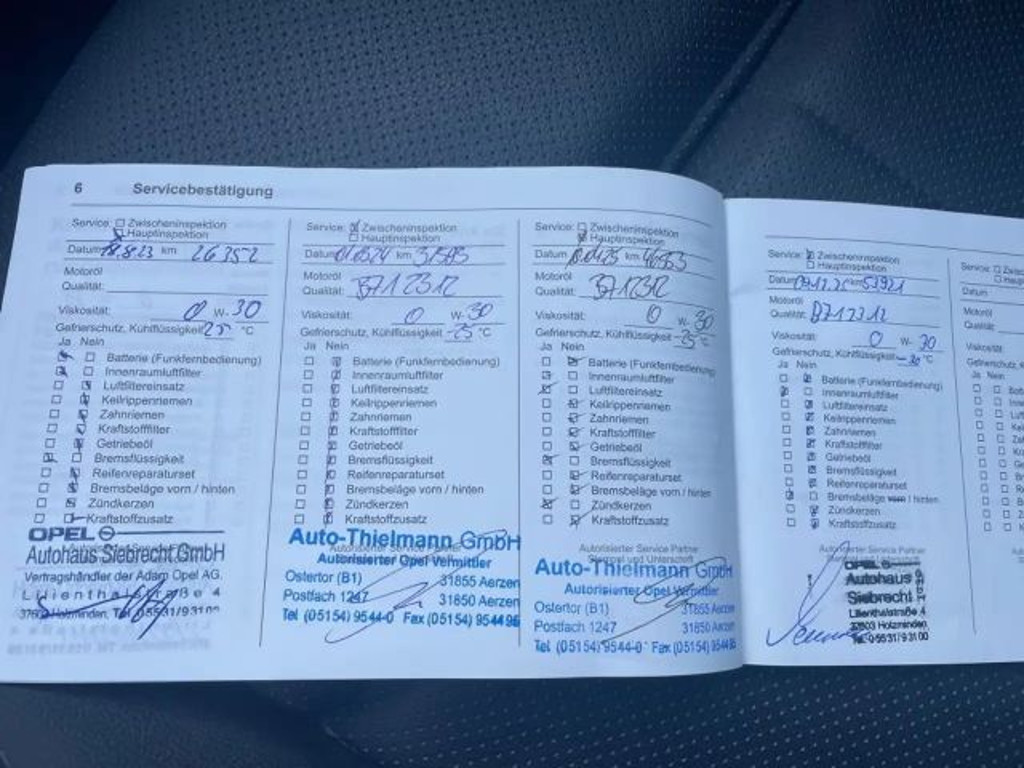 6 Servicebestätigung
Service: Zwischeninspektion
Hauptinspektion
Datum 18.8.23 km 26352
Motoröl
Qualität:
Viskosität: 0 W- 30
Gefrierschutz, Kühlflüssigkeit 25 °C
Ja Nein
Batterie (Funkfernbedienung)
Innenraumluftfilter
Luftfiltereinsatz
Keilrippenriemen
Zahnriemen
Kraftstofffilter
Getriebeöl
Bremsflüssigkeit
Reifenreparaturset
Bremsbeläge vorn / hinten
Zündkerzen
Kraftstoffzusatz
OPEL
Autohaus Siebrecht GmbH
Vertragshändler der Adam Opel AG
Lilienthalstraße 4
37603 Holzminden, Tel. 05531/93100
Service: Zwischeninspektion
Hauptinspektion
Datum km
Motoröl
Qualität: B712312
Viskosität: 0 W- 30
Gefrierschutz, Kühlflüssigkeit -25 °C
Ja Nein
Batterie (Funkfernbedienung)
Innenraumluftfilter
Luftfiltereinsatz
Keilrippenriemen
Zahnriemen
Kraftstofffilter
Getriebeöl
Bremsflüssigkeit
Reifenreparaturset
Bremsbeläge vorn / hinten
Zündkerzen
Kraftstoffzusatz
Auto-Thielmann GmbH
Autorisierter Opel Vermittler
Ostertor (B1) 31855 Aerzen
Postfach 1247 31850 Aerzen
Tel (05154) 9544-0 Fax (05154) 954496
Service: Zwischeninspektion
Hauptinspektion
Datum km
Motoröl
Qualität: B712312
Viskosität: 0 W- 30
Gefrierschutz, Kühlflüssigkeit -25 °C
Ja Nein
Batterie (Funkfernbedienung)
Innenraumluftfilter
Luftfiltereinsatz
Keilrippenriemen
Zahnriemen
Kraftstofffilter
Getriebeöl
Bremsflüssigkeit
Reifenreparaturset
Bremsbeläge vorn / hinten
Zündkerzen
Kraftstoffzusatz
Autorisierter Service Partner
Stempel und Unterschrift
Auto-Thielmann GmbH
Autorisierter Opel Vermittler
Ostertor (B1) 31855 Aerzen
Postfach 1247 31850 Aerzen
Tel (05154) 9544-0 Fax (05154) 954496
Service: Zwischeninspektion
Hauptinspektion
Datum km 53921
Motoröl
Qualität: B712312
Viskosität: 0 W- 30
Gefrierschutz, Kühlflüssigkeit -30 °C
Ja Nein
Batterie (Funkfernbedienung)
Innenraumluftfilter
Luftfiltereinsatz
Keilrippenriemen
Zahnriemen
Kraftstofffilter
Getriebeöl
Bremsflüssigkeit
Reifenreparaturset
Bremsbeläge vorn / hinten
Zündkerzen
Kraftstoffzusatz
Autorisierter Service Partner
OPEL
Autohaus
Siebrecht
Lilienthalstraße 4
37603 Holzminden
Tel. 05531/93100
Service:
Datum
Motoröl
Qualität:
Viskosität:
Ja Nein